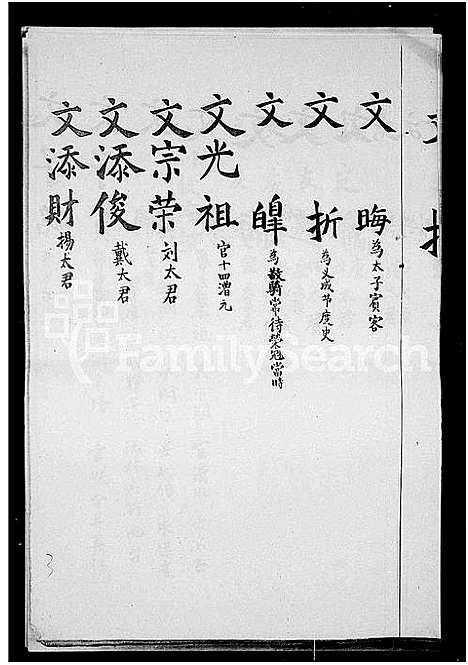 文晦 為太子賓客
文折 為义成节度史
文皡 為散騎常待榮冠當時
文光祖 官十四漕元
文宗荣 刘太君
文添俊 戴太君
文添財 楊太君
3
FamilySearch